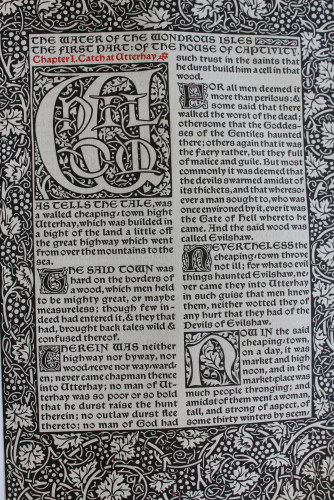 THE WATER OF THE WONDROUS ISLES
THE FIRST PART: OF THE HOUSE OF CAPTIVITY.
Chapter I. Catch at Utterhay.
WHILOM
AS TELLS THE TALE, was
a walled cheaping-town hight
Utterhay, which was builded in
a bight of the land a little off
the great highway which went
from over the mountains to the
sea.
THE SAID TOWN was
hard on the borders of
a wood, which men held
to be mighty great, or maybe
measureless; though few in-
deed had entered it, & they that
had, brought back tales wild &
confused thereof.
THEREIN WAS neither
highway nor byway, nor
wood-reeve nor way-ward-
en; never came chapman thence
into Utterhay; no man of Ut-
terhay was so poor or so bold
that he durst raise the hunt
therein; no outlaw durst flee
thereto; no man of God had
such trust in the saints that
he durst build him a cell in that
wood.
FOR all men deemed it
more than perilous; &
some said that there
walked the worst of the dead;
othersome that the Goddess-
es of the Gentiles haunted
there; others again that it was
the faery rather, but they full
of malice and guile. But most
commonly it was deemed that
the devils swarmed amidst of
its thickets, and that whereso-
ever a man sought to, who was
once environed by it, ever it was
the Gate of Hell whereto he
came. And the said wood was
called Evilshaw.
NEVERTHELESS the
cheaping-town throve
not ill; for whatso evil
things haunted Evilshaw, ne-
ver came they into Utterhay
in such guise that men knew
them, neither wotted they of
any hurt that they had of the
Devils of Evilshaw.
NOW in the said
cheaping-town,
on a day, it was
market and high
noon, and in the
market-place was
much people thronging; and
amidst of them went a woman,
tall, and strong of aspect, of
some thirty winters by seem-